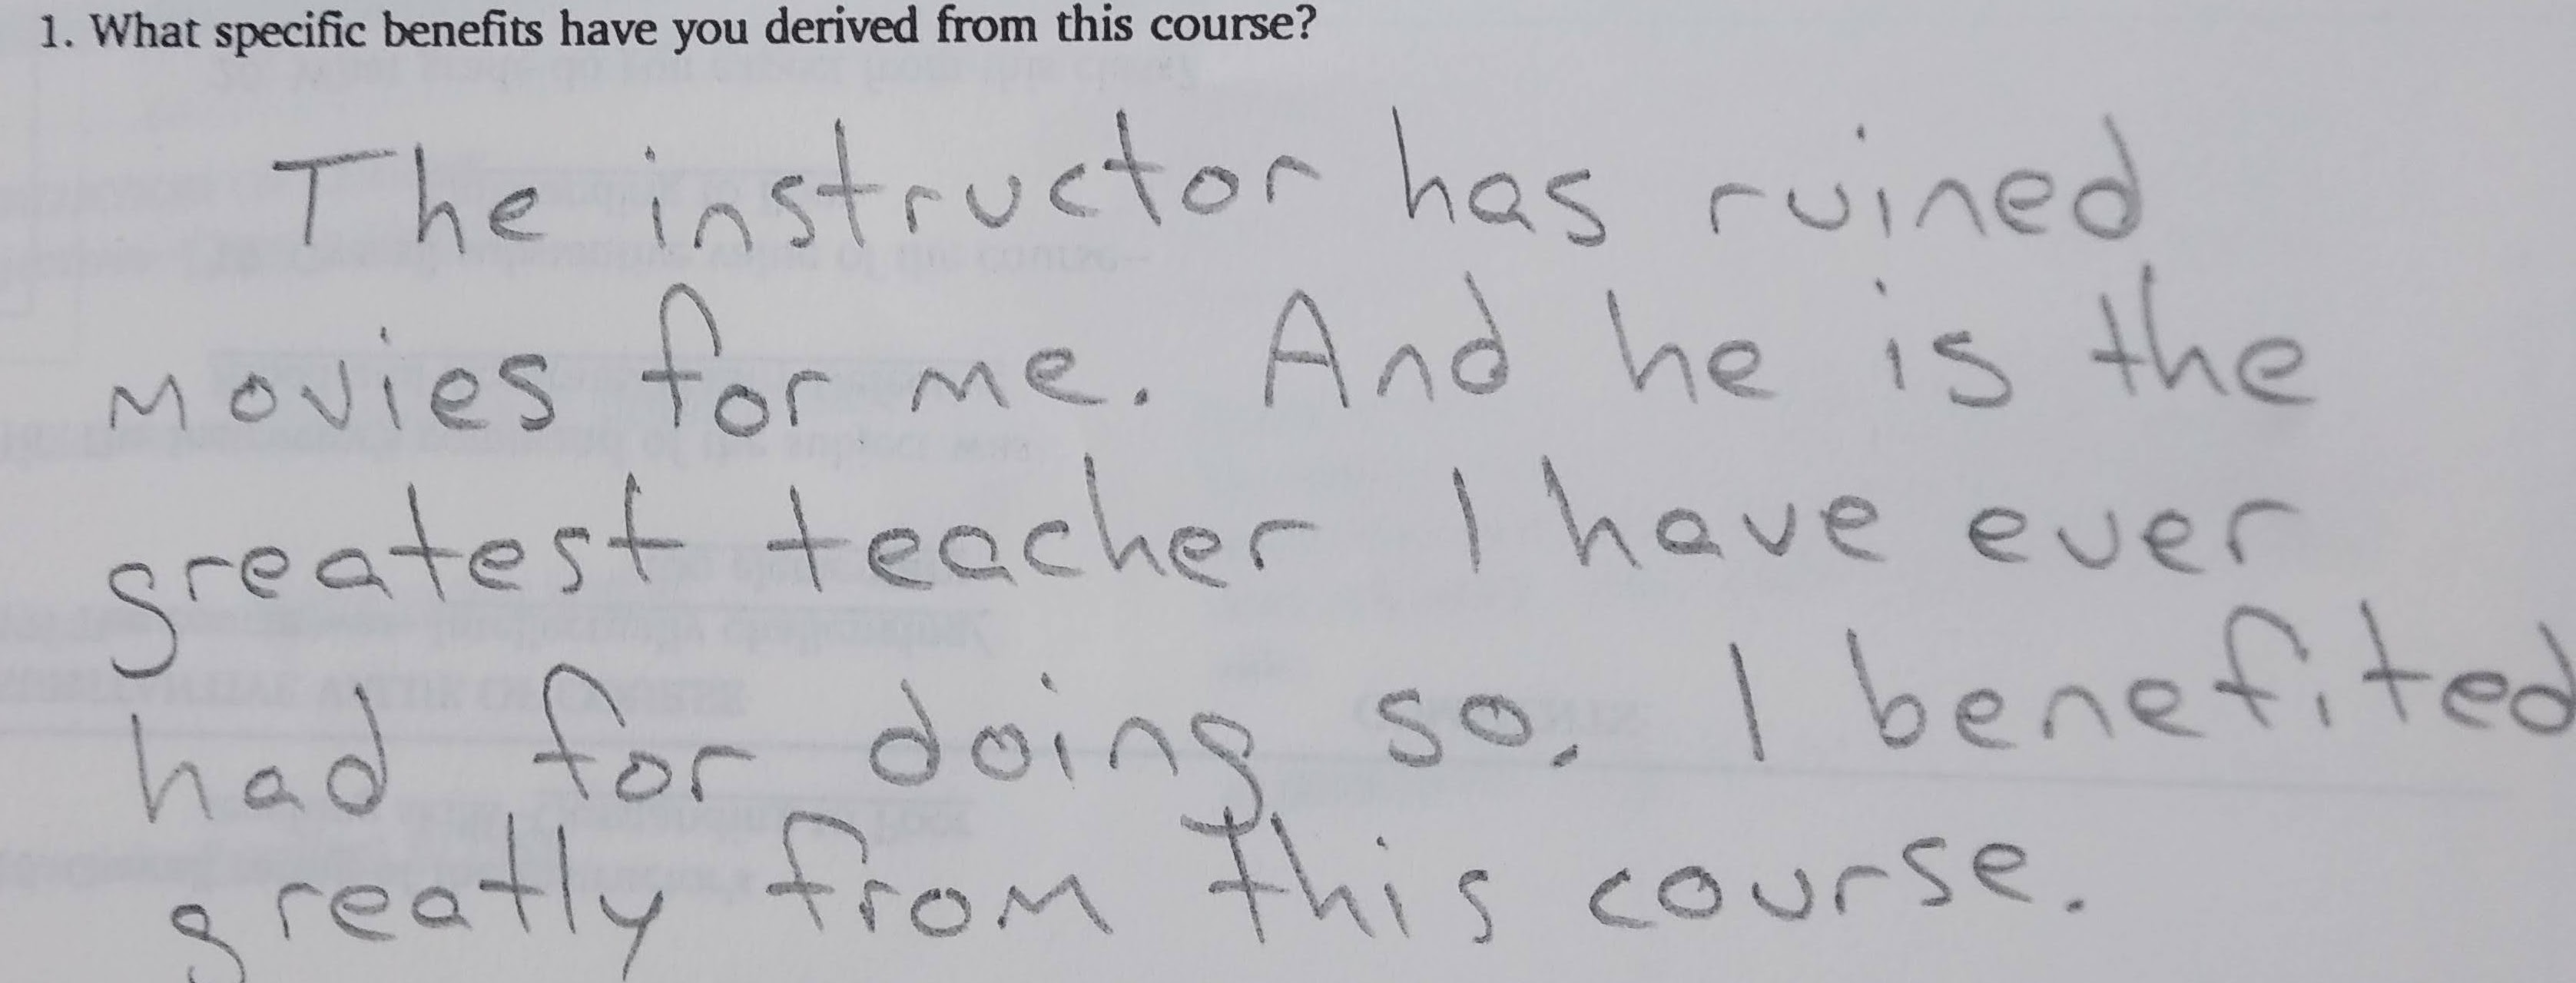 1. What specific benefits have you derived from this course?
The instructor has ruined
movies for me. And he is the
greatest teacher I have ever
had for doing so. I benefited
greatly from this course.